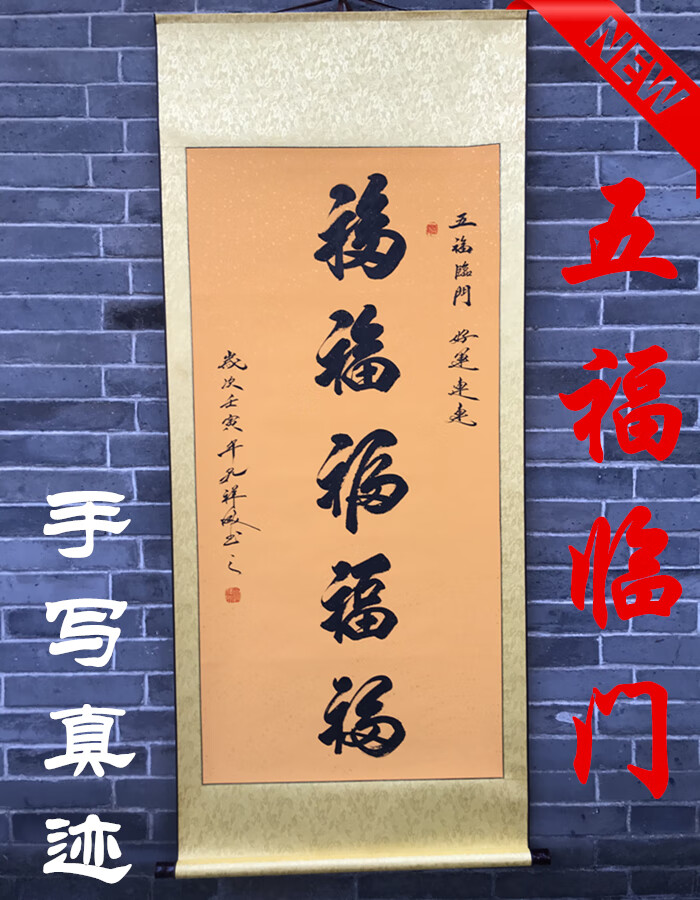 NEW
五福临门
五福臨門 好運連連
福
福
福
福
福
歲次壬寅年孔祥
书之
手写真迹